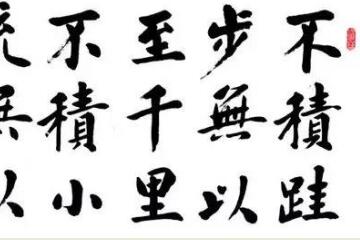 不積跬
步無以
至千里
不積小
流無以